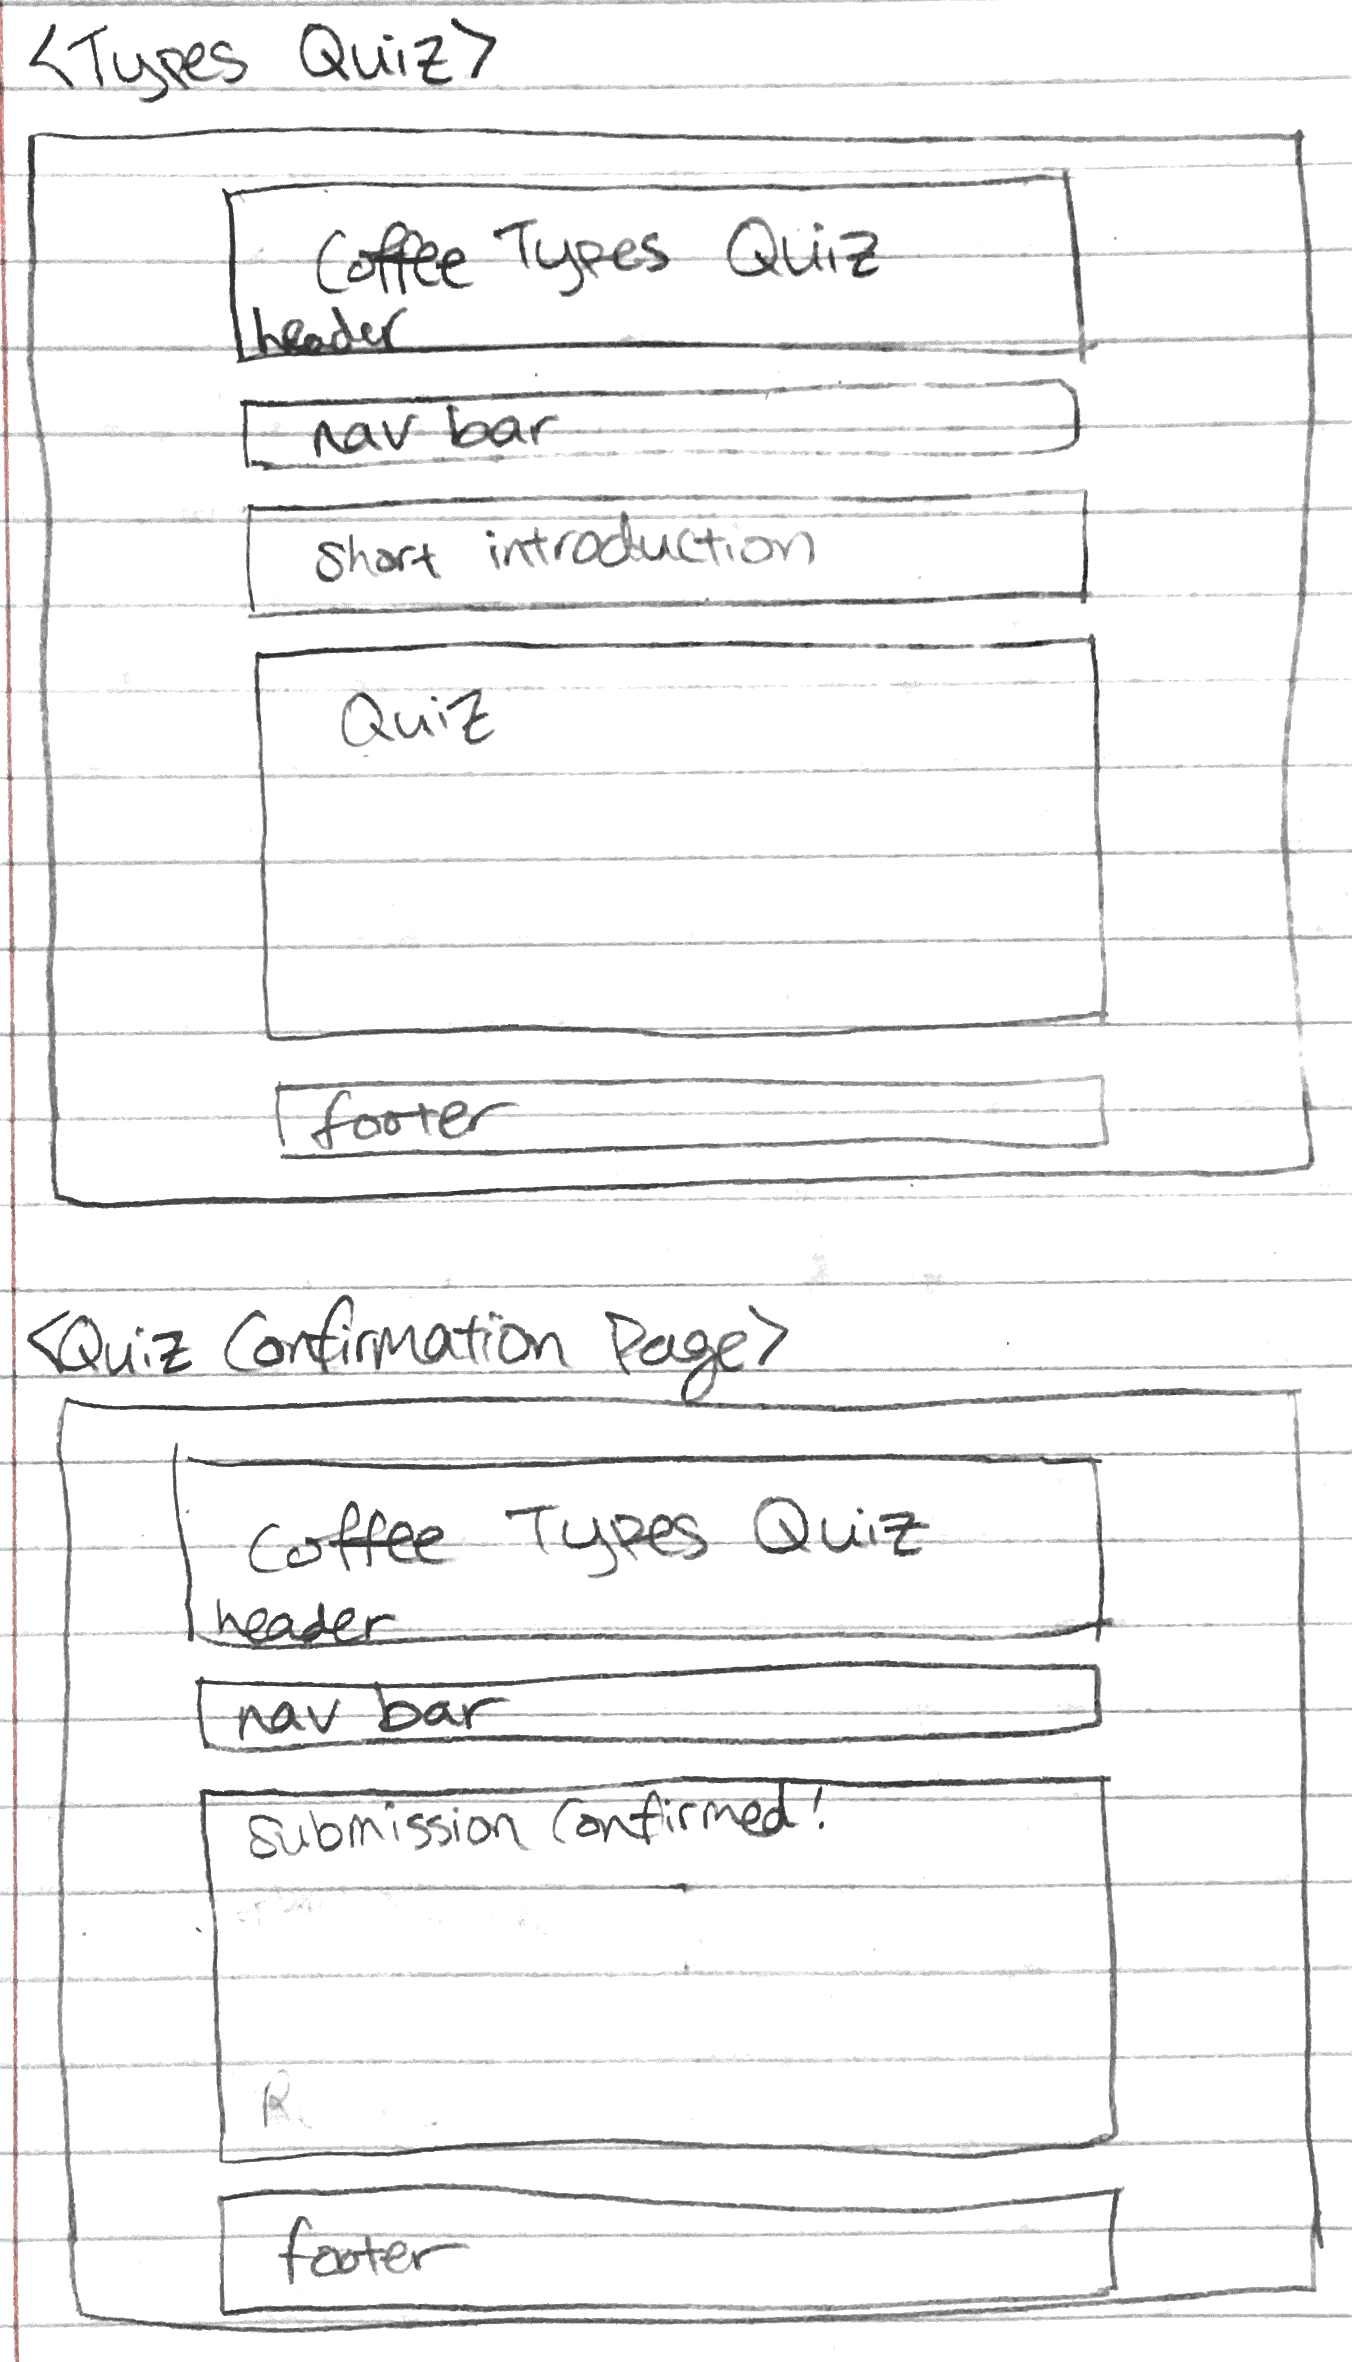 <Types Quiz>
Coffee Types Quiz
header
nav bar
short introduction
Quiz
footer
<Quiz Confirmation Page>
Coffee Types Quiz
header
nav bar
submission confirmed!
footer